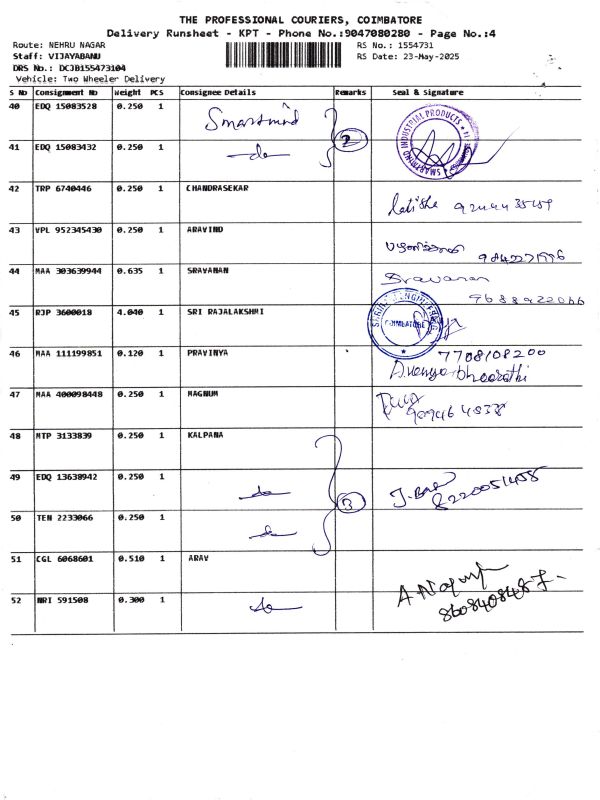 THE PROFESSIONAL COURIERS, COIMBATORE
Delivery Runsheet - KPT - Phone No.:9047080280 - Page No.:4
Route: NEHRU NAGAR
RS No.: 1554731
Staff: VIJAYABANU
RS Date: 23-May-2025
DRS No.: DCJB155473104
Vehicle: Two Wheeler Delivery
S No Consignment No Weight PCS Consignee Details Remarks Seal & Signature
40 EDQ 15083528 0.250 1 Smartmind 2
SMARTMIND INDUSTRIAL PRODUCTS
41 EDQ 15083432 0.250 1 do
42 TRP 6740446 0.250 1 CHANDRASEKAR
43 VPL 952345430 0.250 1 ARAVIND
44 MAA 303639944 0.635 1 SRAVANAN Sravanan
9688922066
45 RJP 3600018 4.040 1 SRI RAJALAKSHMI COIMBATORE
46 MAA 111199851 0.120 1 PRAVINYA 7708108200
47 MAA 400098448 0.250 1 MAGNUM
48 MTP 3133839 0.250 1 KALPANA
49 EDQ 13638942 0.250 1 do 3
50 TEN 2233066 0.250 1 do
51 CGL 6068601 0.510 1 ARAV
52 NRI 591508 0.300 1 do